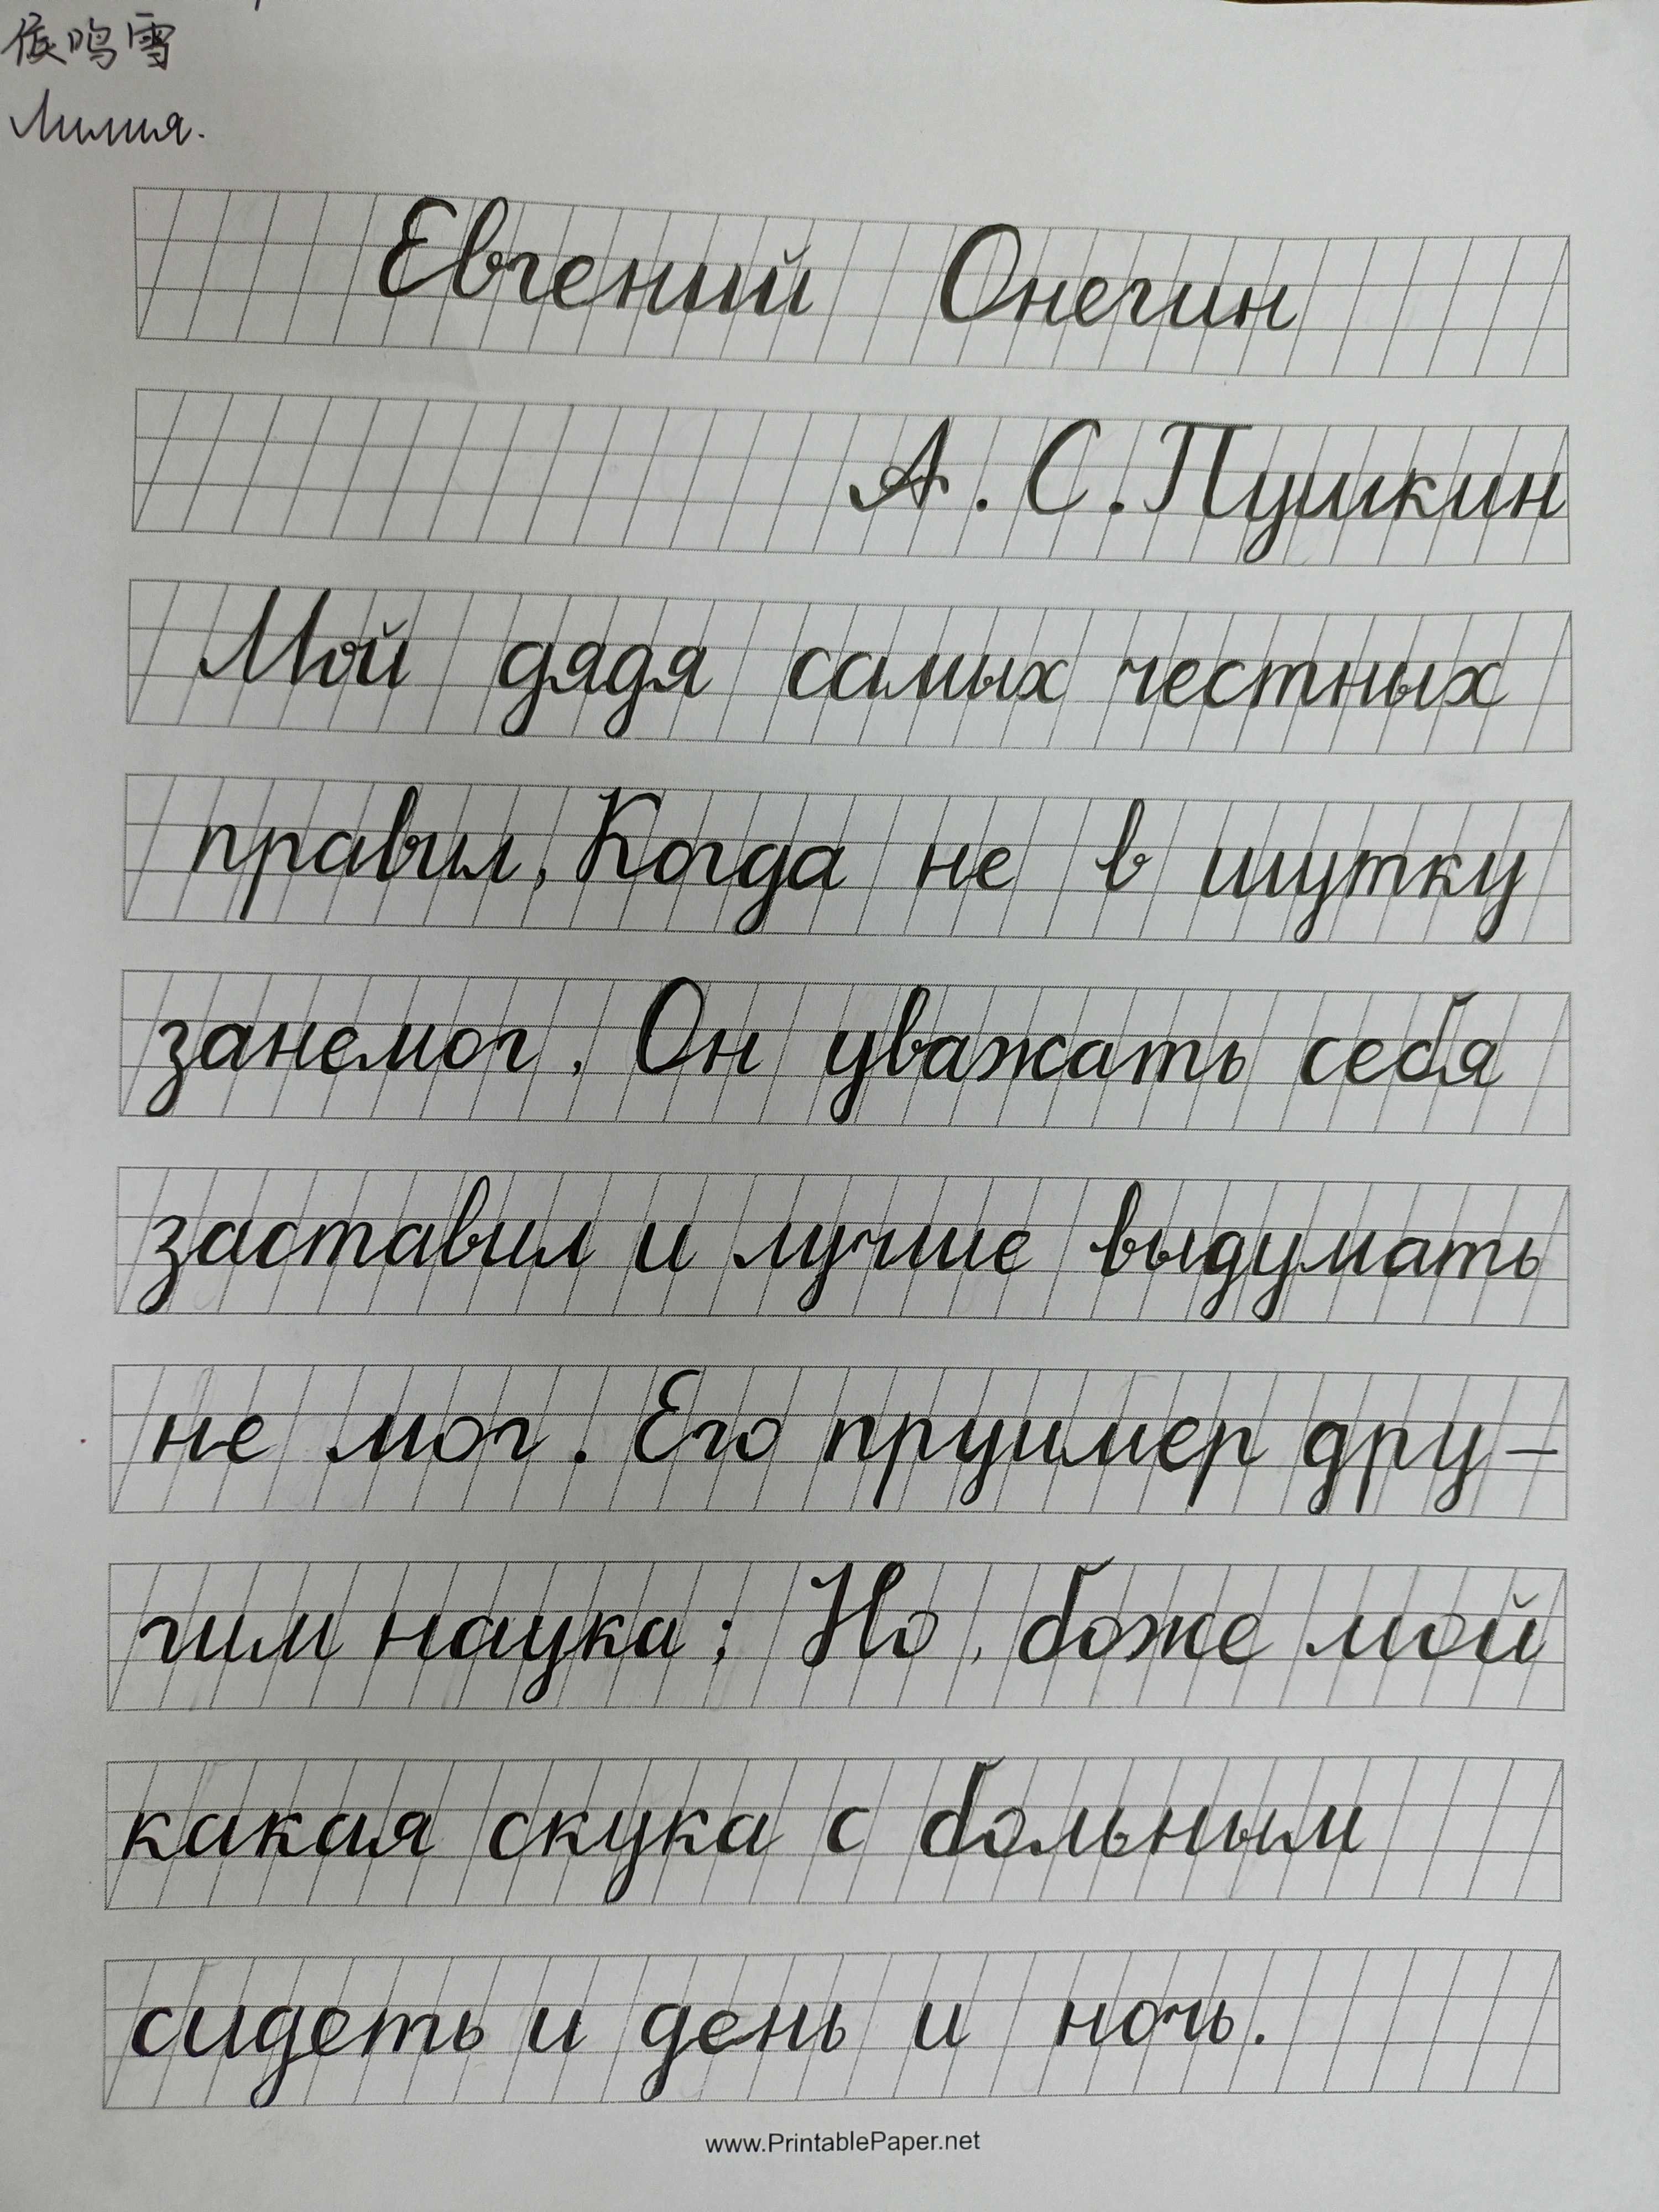 侯鸣雪
Лилия.
Евгений Онегин
А.С.Пушкин
Мой дядя самых честных
правил, Когда не в шутку
занемог, Он уважать себя
заставил и лучше выдумать
не мог. Его пруимер дру-
гим наука; Но, боже мой
какая скука с больным
сидеть и день и ночь.
www.PrintablePaper.net